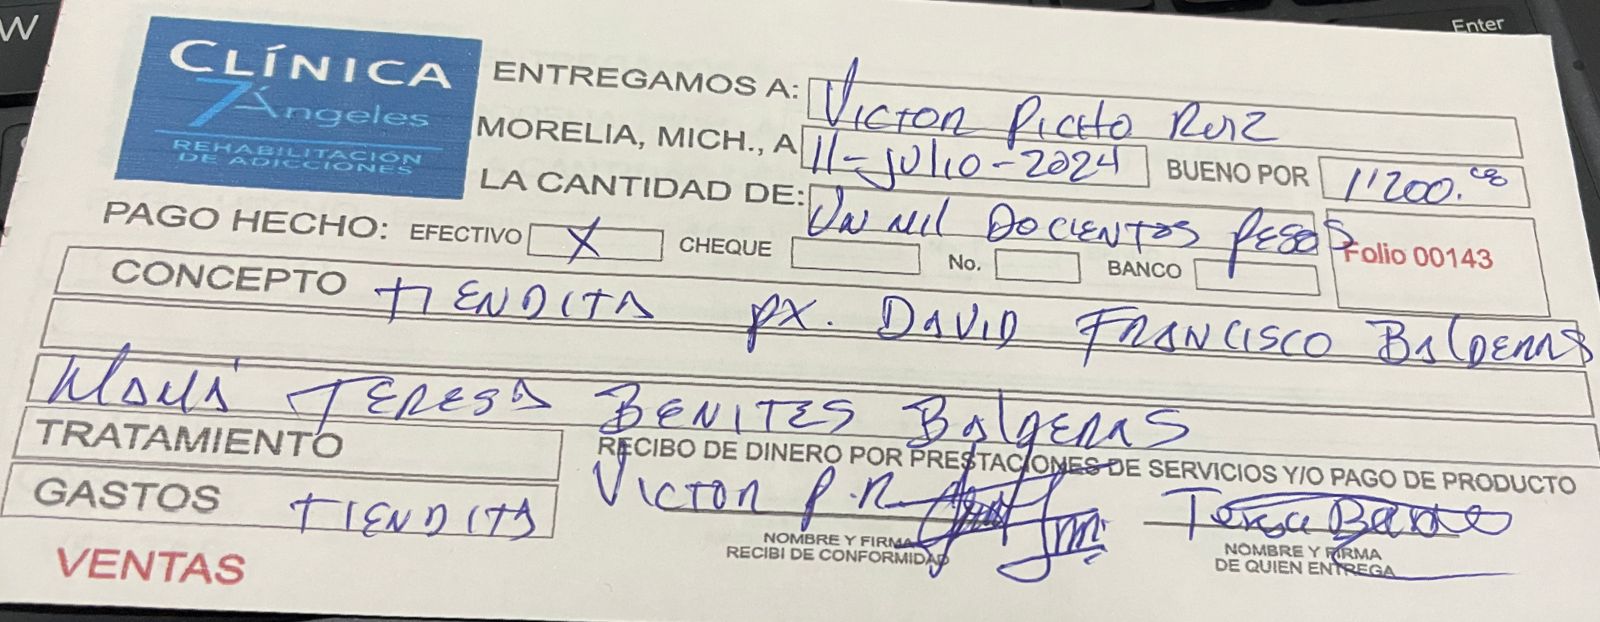 W
Enter
CLÍNICA
7 Ángeles
REHABILITACIÓN
DE ADICCIONES
ENTREGAMOS A: VICTOR PICHO RUIZ
MORELIA, MICH., A 11-JULIO-2024 BUENO POR 1'200.00
LA CANTIDAD DE: UN MIL DOCIENTOS PESOS
Folio 00143
PAGO HECHO: EFECTIVO X CHEQUE No. BANCO
CONCEPTO TIENDITA PX. DAVID FRANCISCO BALDERAS
MARÍA TERESA BENITES BALDERAS
TRATAMIENTO
RECIBO DE DINERO POR PRESTACIONES DE SERVICIOS Y/O PAGO DE PRODUCTO
GASTOS TIENDITA
VICTOR P.R.
Teresa
NOMBRE Y FIRMA
RECIBI DE CONFORMIDAD
NOMBRE Y FIRMA
DE QUIEN ENTREGA
VENTAS